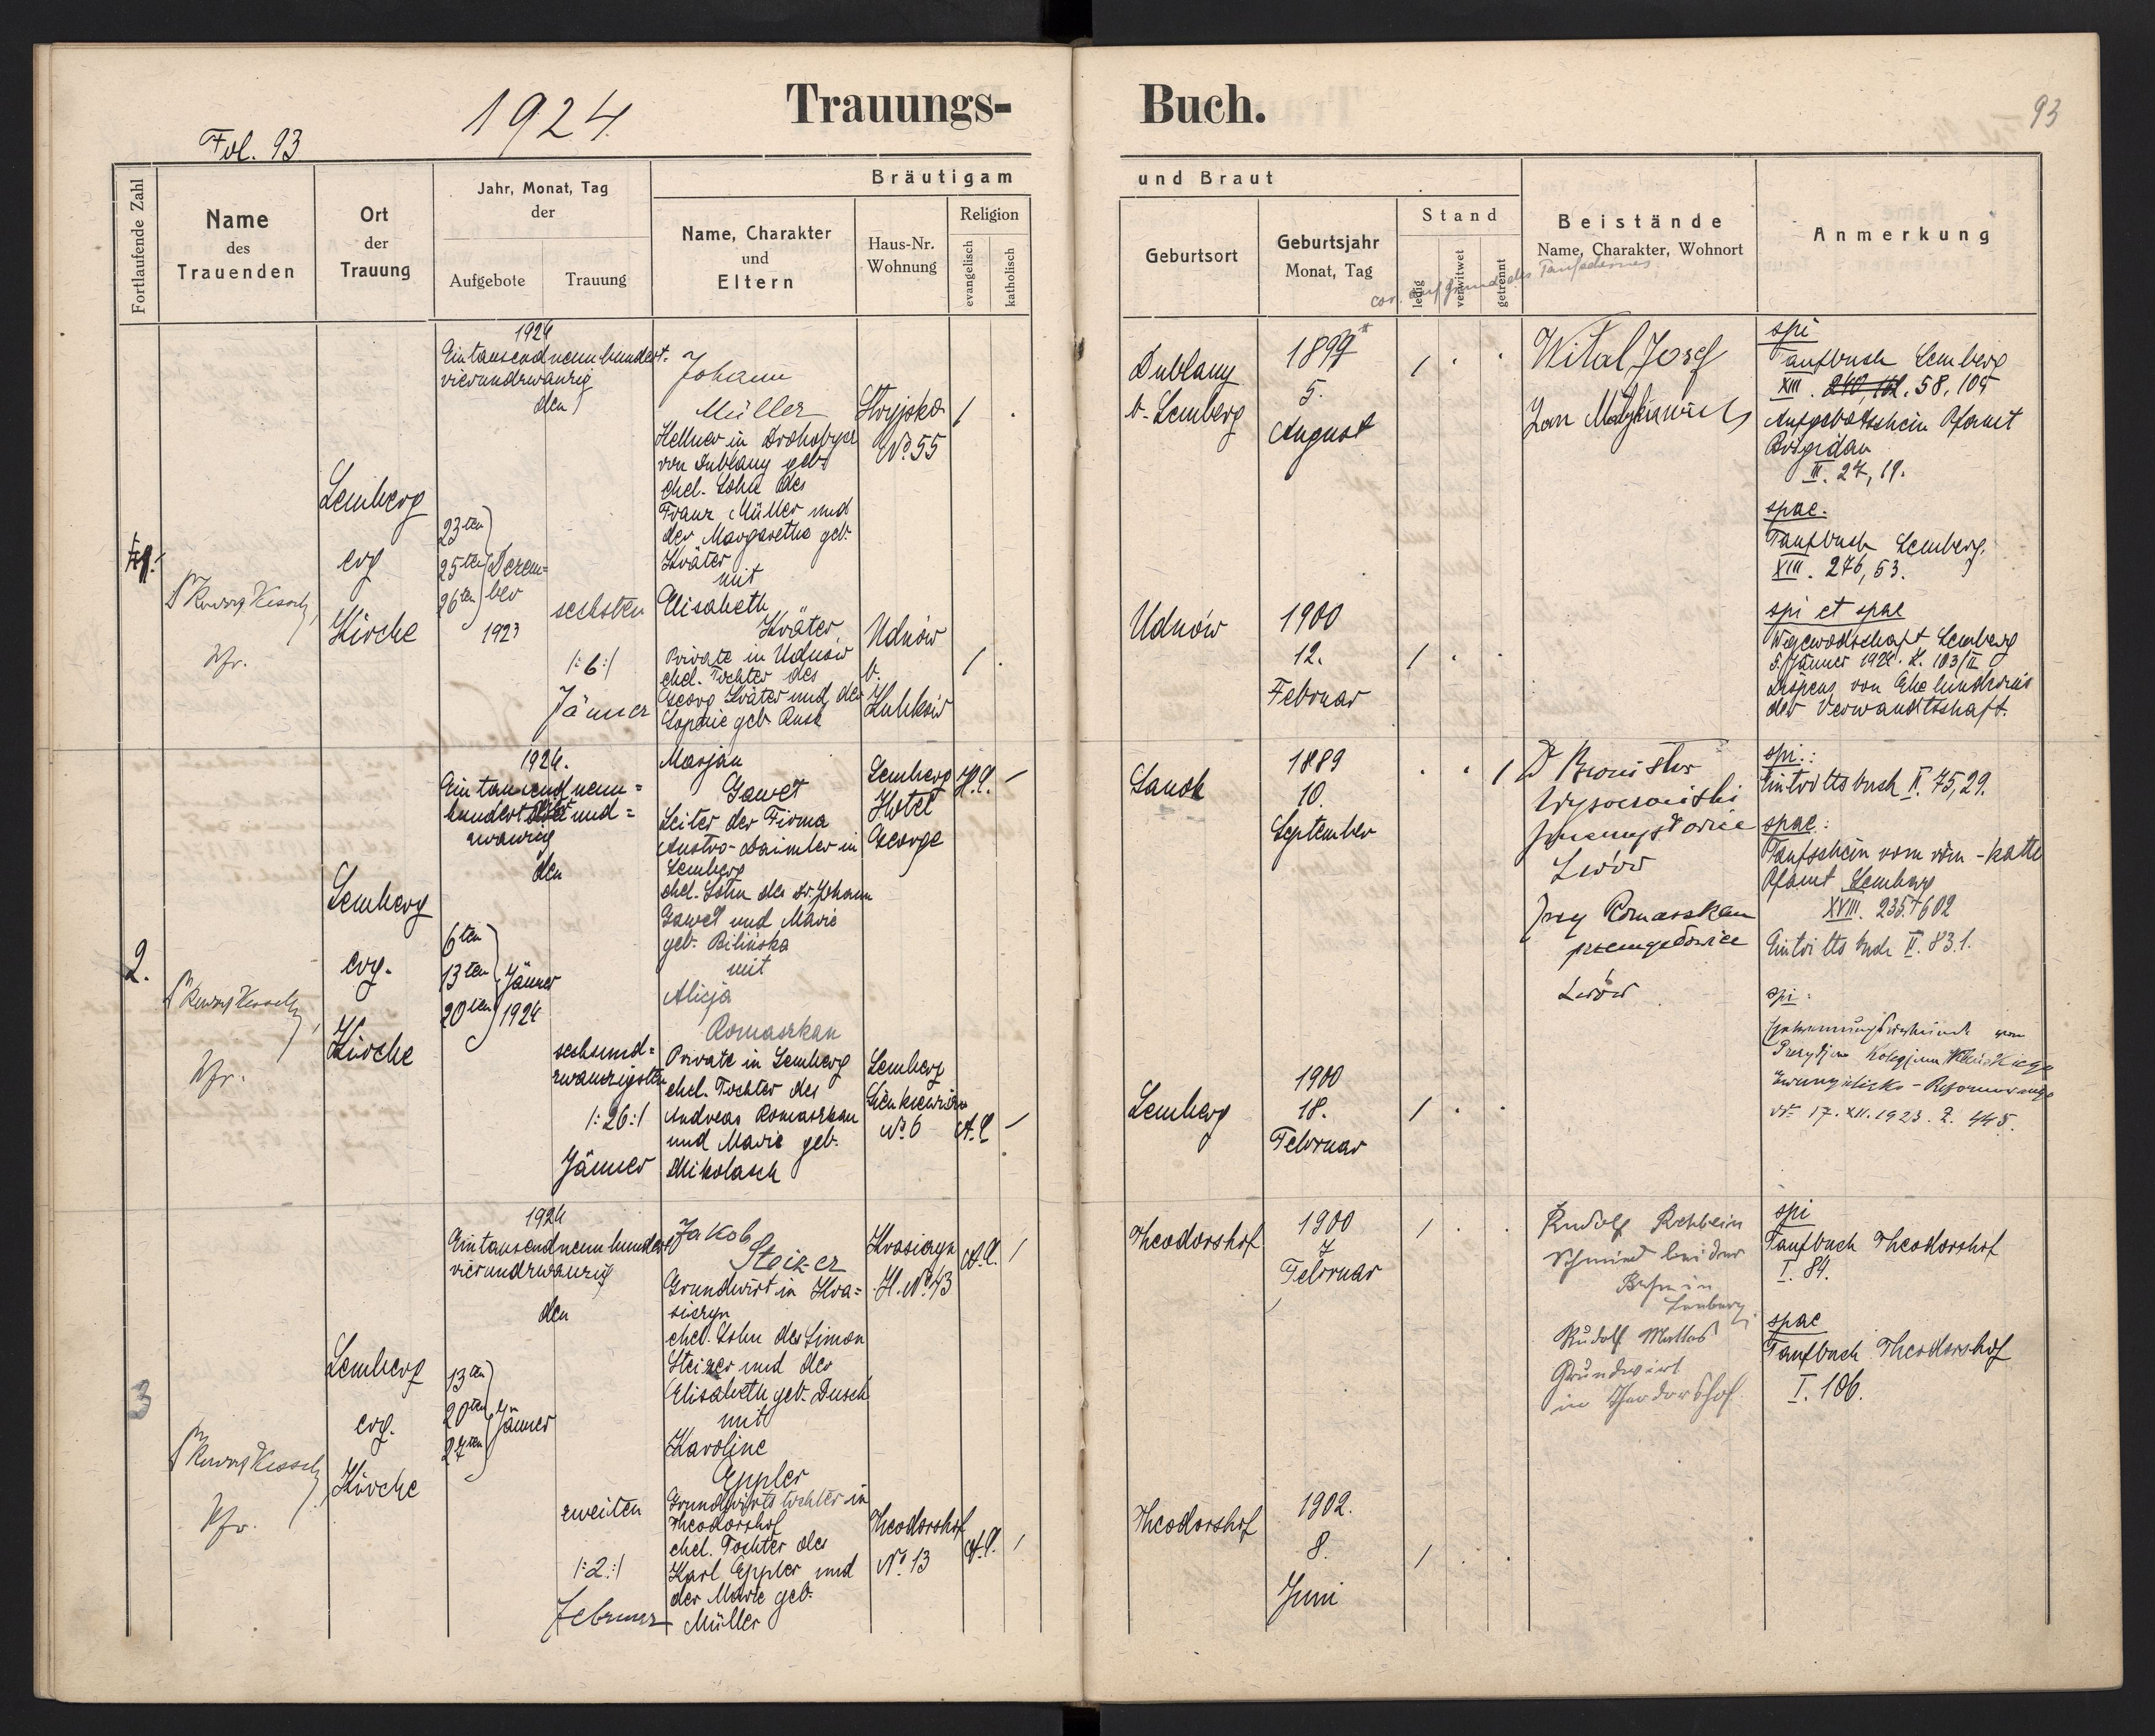 1924
Trauungs-
Buch.
93
Fol. 93
Fortlaufende Zahl
Name
des
Trauenden
Ort
der
Trauung
Jahr, Monat, Tag
der
Aufgebote
Trauung
Bräutigam
und Braut
Name, Charakter
und
Eltern
Haus-Nr.
Wohnung
Religion
evangelisch
katholisch
Geburtsort
Geburtsjahr
Monat, Tag
Stand
ledig
verwitwet
getrennt
Beistände
Name, Charakter, Wohnort
Anmerkung
cor. auf Grund des
Pfr.
Lemberg
evg
Kirche
1924
Eintausendneunhundert-
vierundzwanzig
den
23ten
25ten Dezem=
26ten ber
1923
sechsten
/:6:/
Jänner
Johann
Müller
Kellner in Drohobycz
von Dublany geb.
ehel. Sohn des
Franz Müller und
der Margaretha geb.
Kräter
mit
Elisabeth
Kräter
Private in Udnów
ehel. Tochter des
Georg Kräter und der
Sophie geb. Rusz
Stryjska
No 55
Udnów
b.
Kulików
Dublany
b. Lemberg
1899
5.
August
Udnów
1900
12.
Februar
Wital Josef
Jan
spi
Taufbuch Lemberg
XIII. 58, 105
Aufgebotsschein Pfarramt
III. 27, 19.
spae.
Taufbuch Lemberg
XIII. 276, 53.
spi et spae
Wojewodschaft Lemberg
5. Jänner 1924. Z. 103/II
Dispens von Ehehindernis
der Verwandtschaft.
2.
Pfr.
Lemberg
evg.
Kirche
1924.
Eintausendneun=
hundert und=
zwanzig
den
6ten
13ten Jänner
20ten 1924
sechsund=
zwanzigsten
/:26:/
Jänner
Marjan
Gaweł
Leiter der Firma
Austro-Daimler in
Lemberg
ehel. Sohn des Dr. Johann
Gaweł und Marie
geb. Bilińska
mit
Alicja
Romaszkan
Private in Lemberg
ehel. Tochter des
Andreas Romaszkan
und Marie geb.
Mikolasch
Lemberg
Hotel
George
H.C.
Lemberg
Sienkiewicza
No 6
A.C.
Sanok
1889
10.
September
Lemberg
1900
18.
Februar
Dr
przemysłowiec
Lwów
Romaszkan
przemysłowiec
Lwów
spi.:
Eintrittsbuch II. 75, 29.
spae:
Taufschein vom röm-kath
Pfamt Lemberg
XVIII. 235, 602
Eintrittsbuch II. 83.1.
spi:
17. XII. 1923. Z. 445.
3
Pfr.
Lemberg
evg.
Kirche
1924
Eintausendneunhundert
vierundzwanzig
den
13ten
20ten Jänner
27ten
zweiten
/:2:/
Februar
Jakob
Steizer
Grundwirt in Kra=
siczyn
ehel. Sohn des Simon
Steizer und der
Elisabeth geb. Dusch
mit
Karoline
Eppler
Grundwirtstochter in
Theodorshof
ehel. Tochter des
Karl Eppler und
der Marie geb.
Müller
Krasiczyn
H. No 43
A.C.
Theodorshof
No 13
A.C.
Theodorshof
1900
7
Februar
Theodorshof
1902.
8.
Juni
Rudolf Rehbein
Schmied bei der
Bahn in
Lemberg
Rudolf
Grundwirt
in Theodorshof.
spi
Taufbuch Theodorshof
I. 84.
spae
Taufbuch Theodorshof
I. 106.